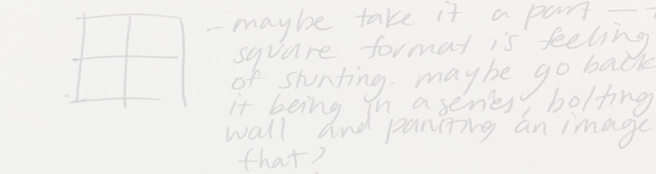 - maybe take it a part —
square format is feeling
of stunting. maybe go back
it being in a series, bolting
wall and painting an image
that?